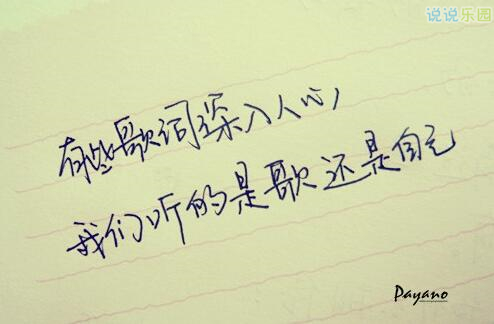 说说乐园
有些歌词深入人心，
我们听的是歌还是自己
Payano